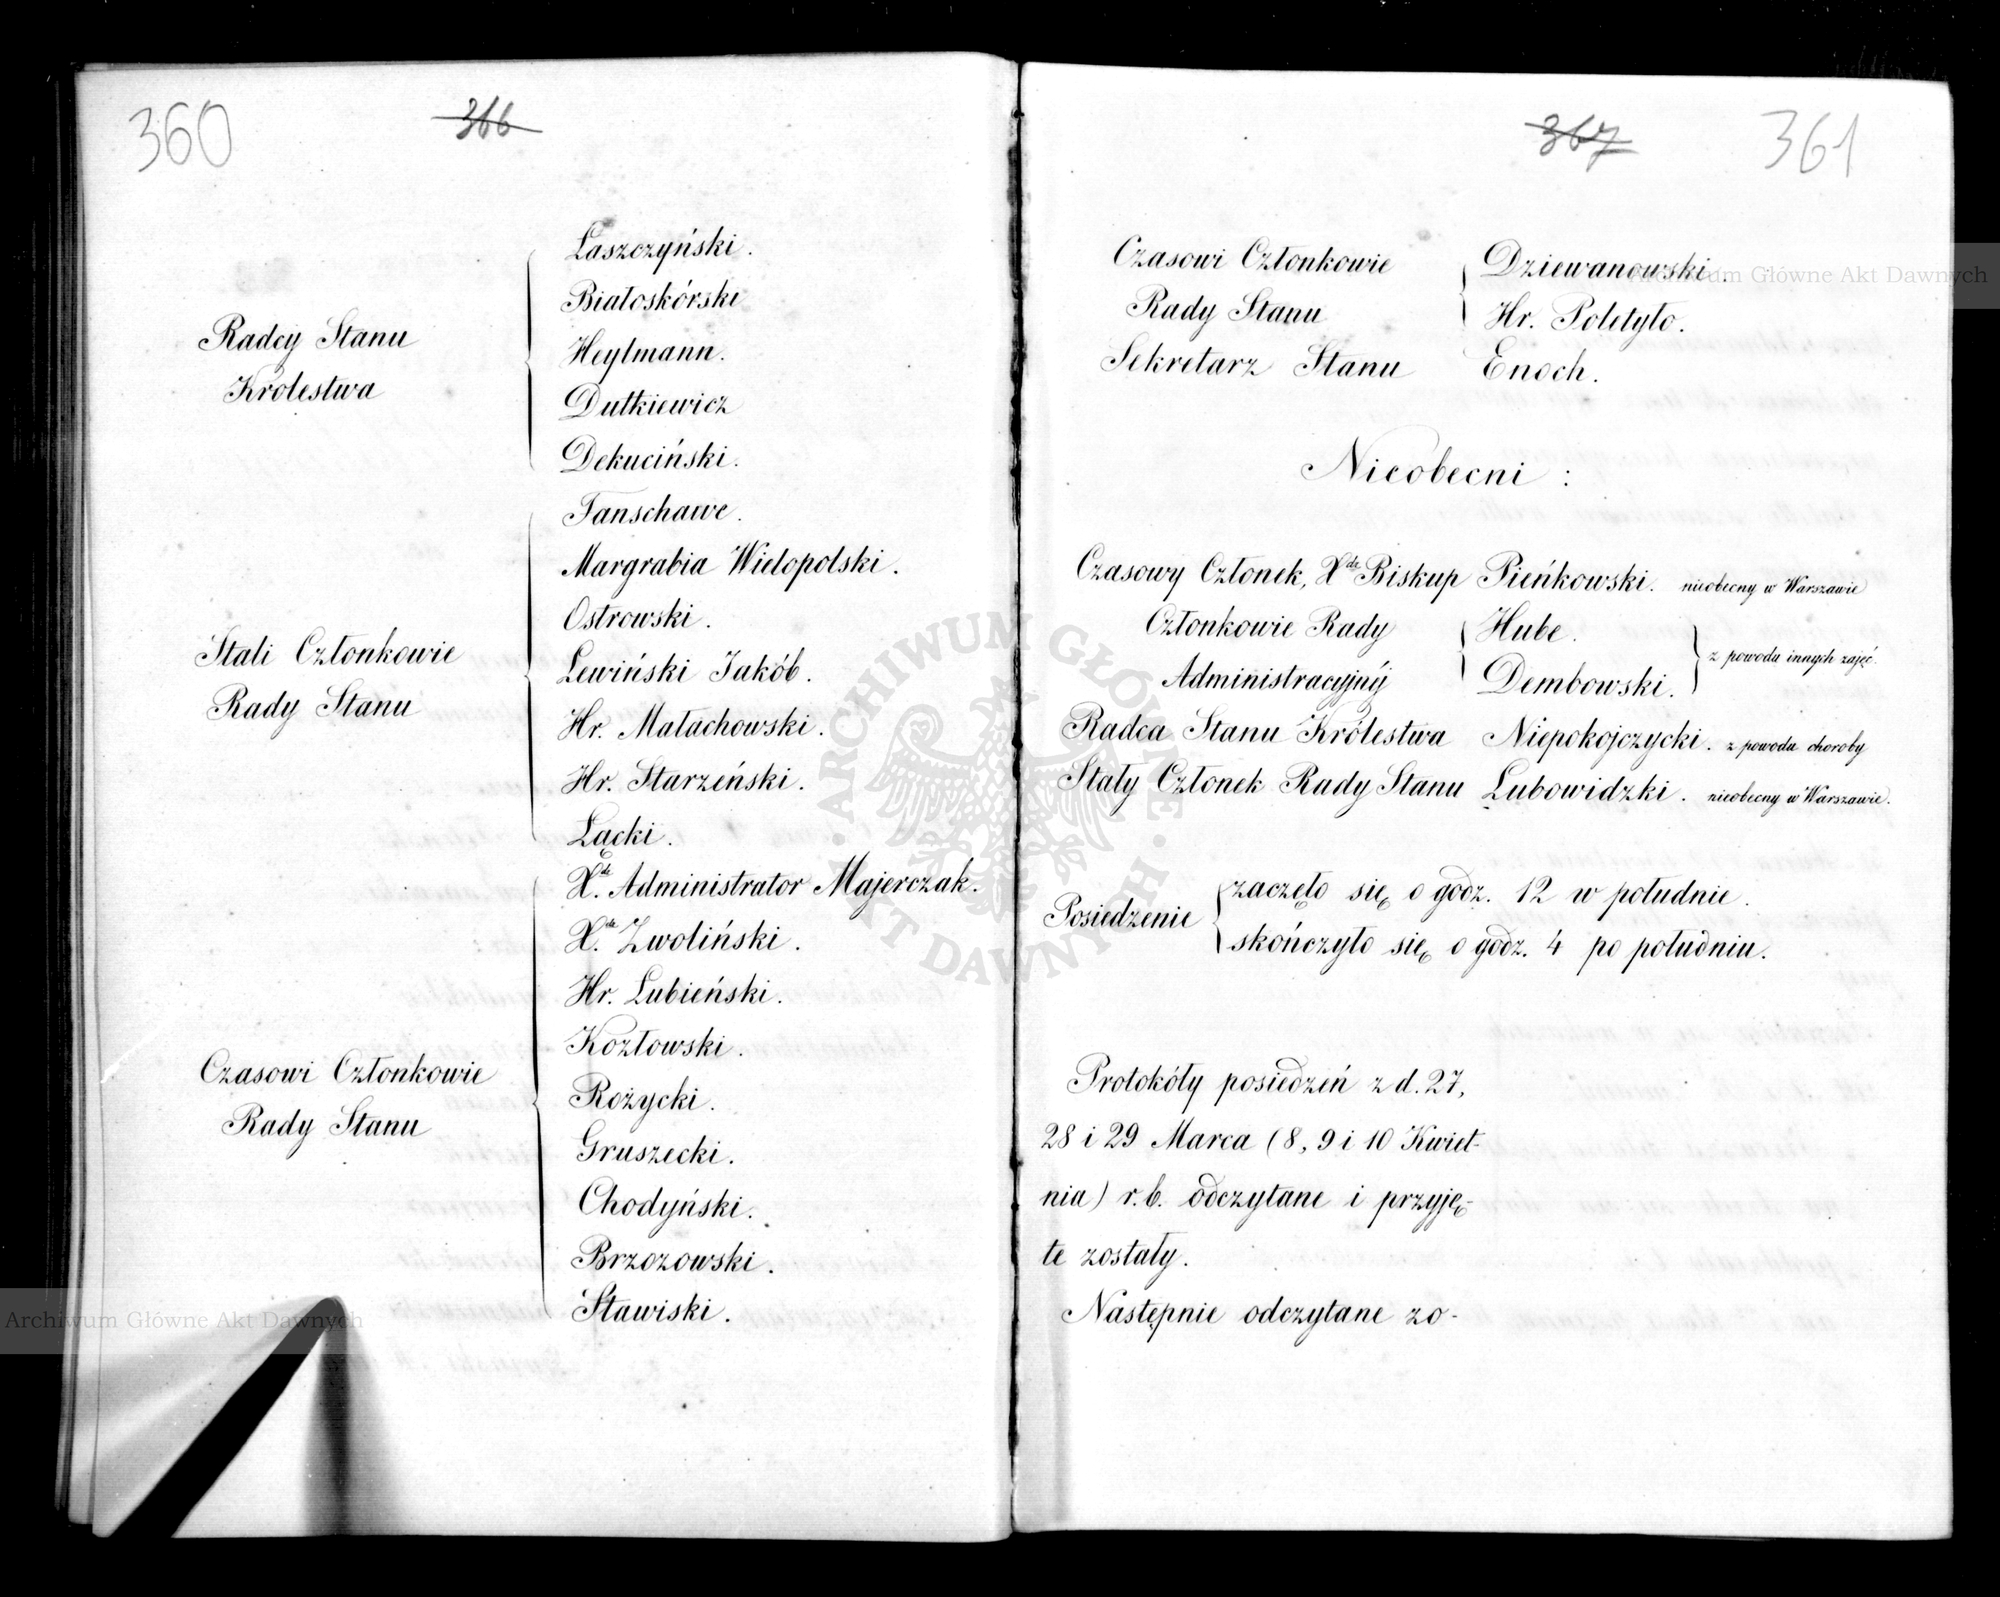 360
366
Łaszczyński.
Białoskórski
Radcy Stanu
Heylmann.
Królestwa
Dutkiewicz
Dekuciński.
Fanschawe.
Margrabia Wielopolski.
Ostrowski.
Stali Członkowie
Lewiński Jakób.
Rady Stanu
Hr. Małachowski.
Hr. Starzeński.
Łącki.
X.dz Administrator Majerczak.
X.dz Zwoliński.
Hr. Łubieński.
Kozłowski.
Czasowi Członkowie
Rożycki.
Rady Stanu
Gruszecki.
Chodyński.
Brzozowski.
Stawiski.
367
361
Czasowi Członkowie Dziewanowski.
Rady Stanu Hr. Poletyło.
Sekretarz Stanu Enoch.
Nieobecni :
Czasowy Członek, Xdz Biskup Pieńkowski. nieobecny w Warszawie
Członkowie Rady Hube.
z powodu innych zajęć.
Administracyjnéj Dembowski.
Radca Stanu Królestwa Niepokojczycki. z powodu choroby
Stały Członek Rady Stanu Łubowidzki. nieobecny w Warszawie.
Posiedzenie
zaczęło się o godz. 12 w południe.
skończyło się o godz. 4 po południu.
Protokóły posiedzeń z d. 27,
28 i 29 Marca (8, 9 i 10 Kwiet-
nia) r. b. odczytane i przyję-
te zostały.
Następnie odczytane zo-
Archiwum Główne Akt Dawnych
Archiwum Główne Akt Dawnych
ARCHIWUM GŁÓWNE AKT DAWNYCH